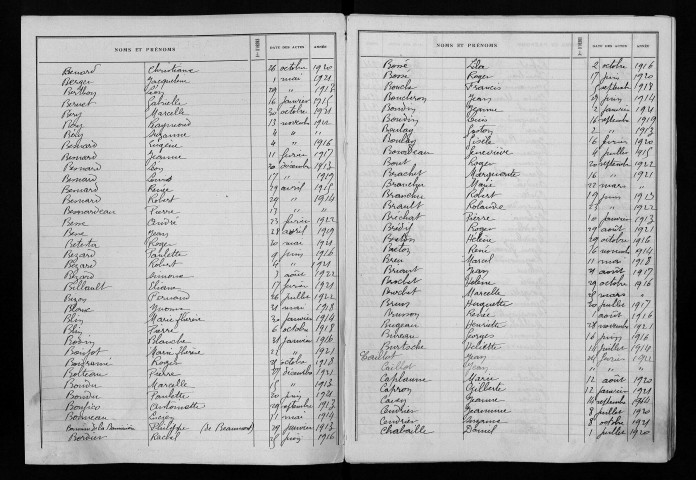 NOMS ET PRÉNOMS DATE DES ACTES ANNÉE
Benard Christiane 26 octobre 1920
Berger Jacqueline 1 mai 1921
Berthon Léon 29 " 1918
Bernet Gabrielle 16 janvier 1915
Bery Marcelle 30 octobre 1921
Bery Raymond 13 novembre 1922
Bery Suzanne 4 " "
Besnard Eugène 4 " 1916
Besnard Jeanne 11 février 1917
Besnard Léon 20 décembre 1913
Besnard 17 " 1919
Besnard Renée 29 avril 1915
Besnard Robert 29 " 1914
Besnardeau Pierre 13 " "
Besse André 23 février 1922
Besse Jean 28 avril 1919
Roger 20 mai 1921
Bezard Paulette 9 juin 1916
Bezard Robert 4 " 1921
Bezard Simone 3 août 1922
Billault 17 février 1921
Bernard 26 juillet 1922
Blanc Yvonne 31 mai 1918
Blin Marie Thérèse 20 janvier 1914
Blin Pierre 6 octobre 1918
Bodin Blanche 31 janvier 1916
Bonfot Marie Thérèse 22 " 1921
Roger 21 octobre 1918
Boiteau Pierre 27 décembre 1921
Boudu Marcelle 15 " 1913
Boudu Paulette 20 juin 1921
Antoinette 29 septembre 1913
Bonneau Lucien 11 mai 1914
Philippe (de Beaumont) 29 janvier 1913
Bordier Rachel 21 juin 1916
NOMS ET PRÉNOMS DATE DES ACTES ANNÉE
Bossé 2 octobre 1916
Bossé Roger 17 juin 1920
Bouche Francis 5 septembre 1918
Boucheron Jean 29 juin 1914
Boudin Jeanne 2 janvier 1920
Boudin Louis 16 septembre 1919
Boulay Gaston 2 " 1913
Boulay Gisèle 16 février 1920
Bourdeau Geneviève 4 juillet 1915
Bout Roger 20 septembre 1922
Brachet Marguerite 16 " 1921
Brancher Marie 22 mars "
Brancher Robert 19 juin 1913
Brault Rolande 23 " 1922
Brechat Pierre 10 janvier 1913
Roger 29 août 1921
Breton Hélène 29 octobre 1915
Breton René 16 novembre 1914
Breu Marcel 11 mai 1918
Briant Jean 21 août 1917
Brochet Hélène 29 octobre 1916
Brochet Marcelle 28 mars "
Brun Huguette 20 juillet 1917
Brusson Renée 1 août 1916
Bugeau Henriette 28 novembre 1921
Bureau Georges 16 juin 1916
Burtsche Juliette 14 juillet 1914
Caillot Jean 24 février 1922
Caillot Jean " "
Caplanne Marie 12 août 1920
Capron Gilberte 12 janvier 1921
Jeanne 14 septembre 1914
Cendrier Jeannine 8 juillet 1920
Cendrier Suzanne 8 octobre 1921
Chabaille Daniel 1 juillet 1920